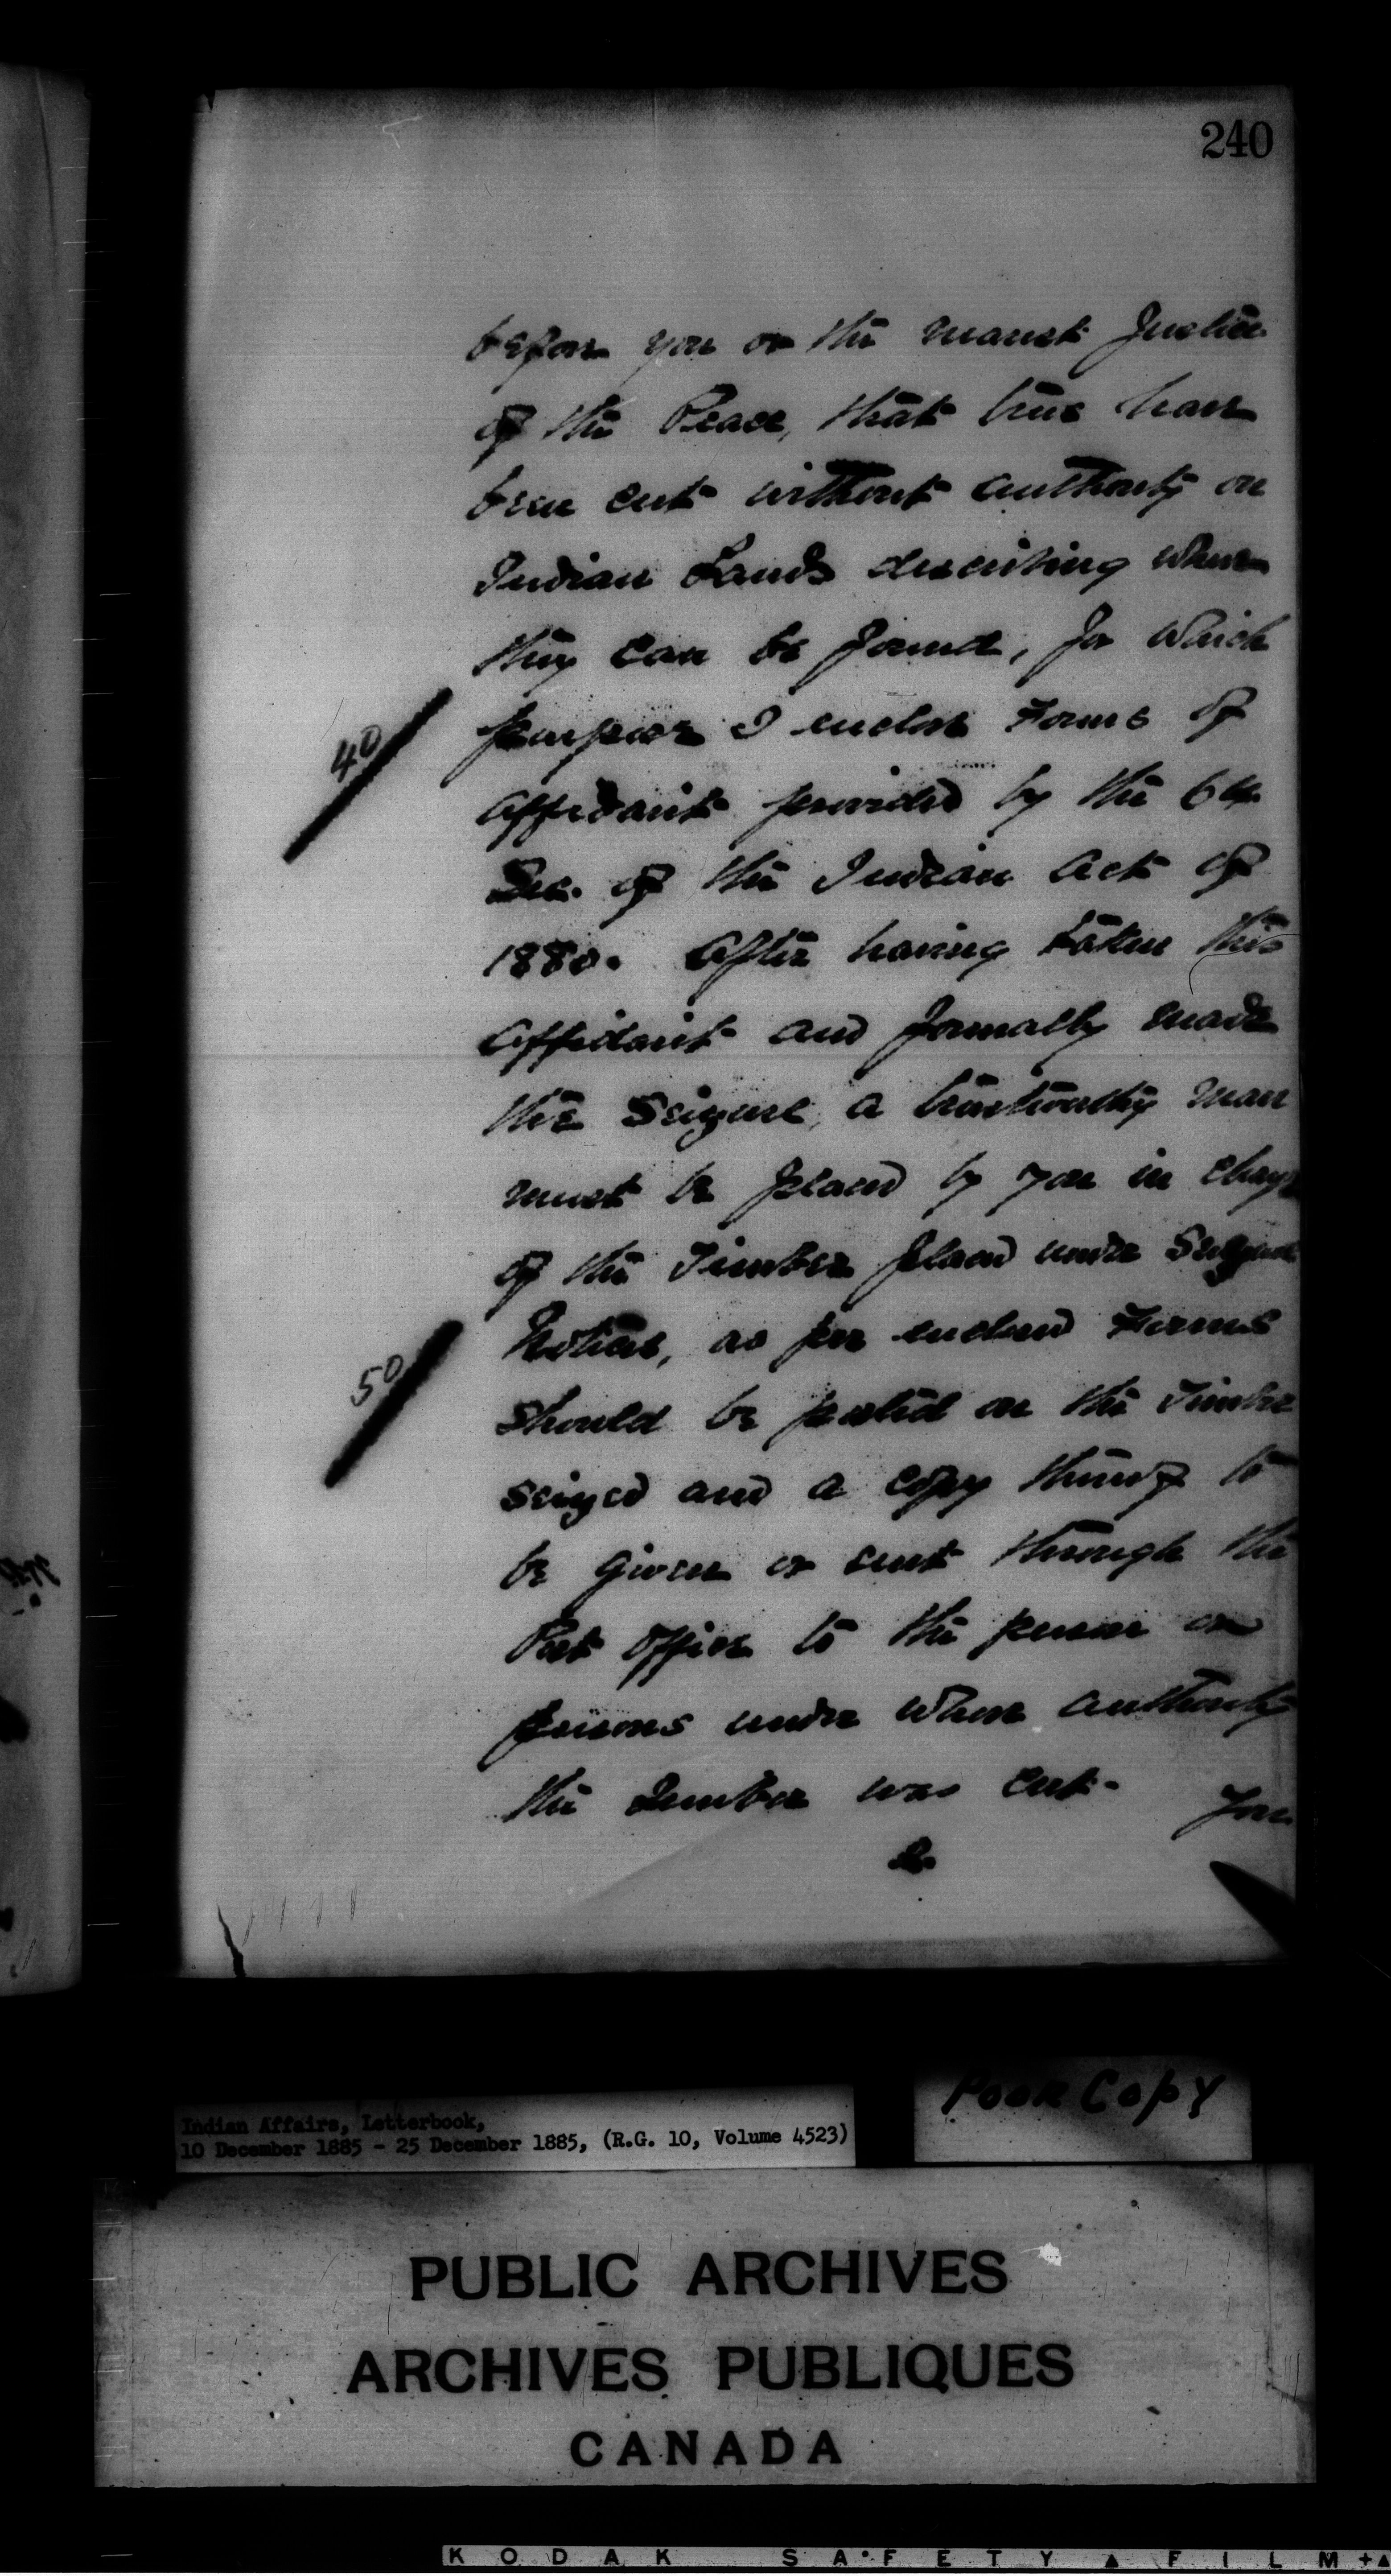 240
before you or the nearest Justice
of the Peace, that trees have
been cut without authority on
Indian Lands describing where
they can be found, for which
40
purpose I enclose Forms of
Affidavit provided by the 64
Sec. of the Indian Act of
1880. After having taken this
Affidavit and formally made
the Seizure, a trustworthy man
must be placed by you in charge
of the Timber placed under Seizure
50
Notices, as per enclosed Forms
should be posted on the Timber
seized and a copy thereof to
be given or sent through the
Post Office to the person or
persons under whose authority
the Timber was cut. You
Indian Affairs, Letterbook,
10 December 1885 - 25 December 1885, (R.G. 10, Volume 4523)
Poor Copy
PUBLIC ARCHIVES
ARCHIVES PUBLIQUES
CANADA
KODAK SAFETY ▲ FILM +▲